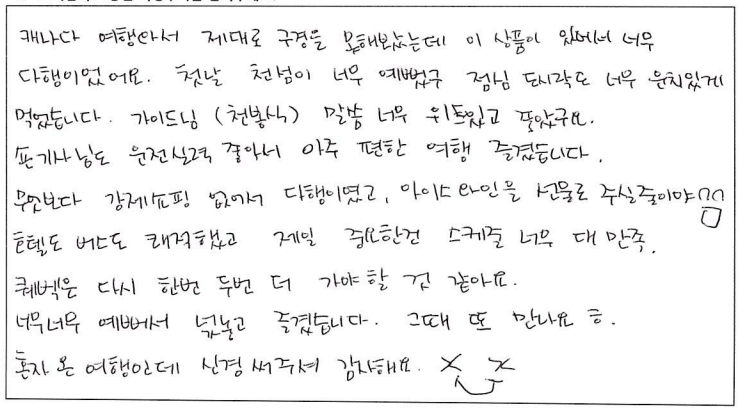 캐나다 여행와서 제대로 구경을 못해봤는데 이 상품이 있어서 너무
다행이었어요. 첫날 천섬이 너무 예뻤구 점심 도시락도 너무 운치있게
먹었습니다. 가이드님 (천봉식) 말씀 너무 위트있고 좋았구요.
손기사님도 운전실력 좋아서 아주 편한 여행 즐겼습니다.
무엇보다 강제쇼핑 없어서 다행이였고, 아이스와인을 선물로 주실줄이야
호텔도 버스도 쾌적했고 제일 중요한건 스케줄 너무 대만족.
퀘벡은 다시 한번 두번 더 가야할 것 같아요.
너무너무 예뻐서 넋놓고 즐겼습니다. 그때 또 만나요 ㅎ.
혼자 온 여행인데 신경써주셔 감사해요.